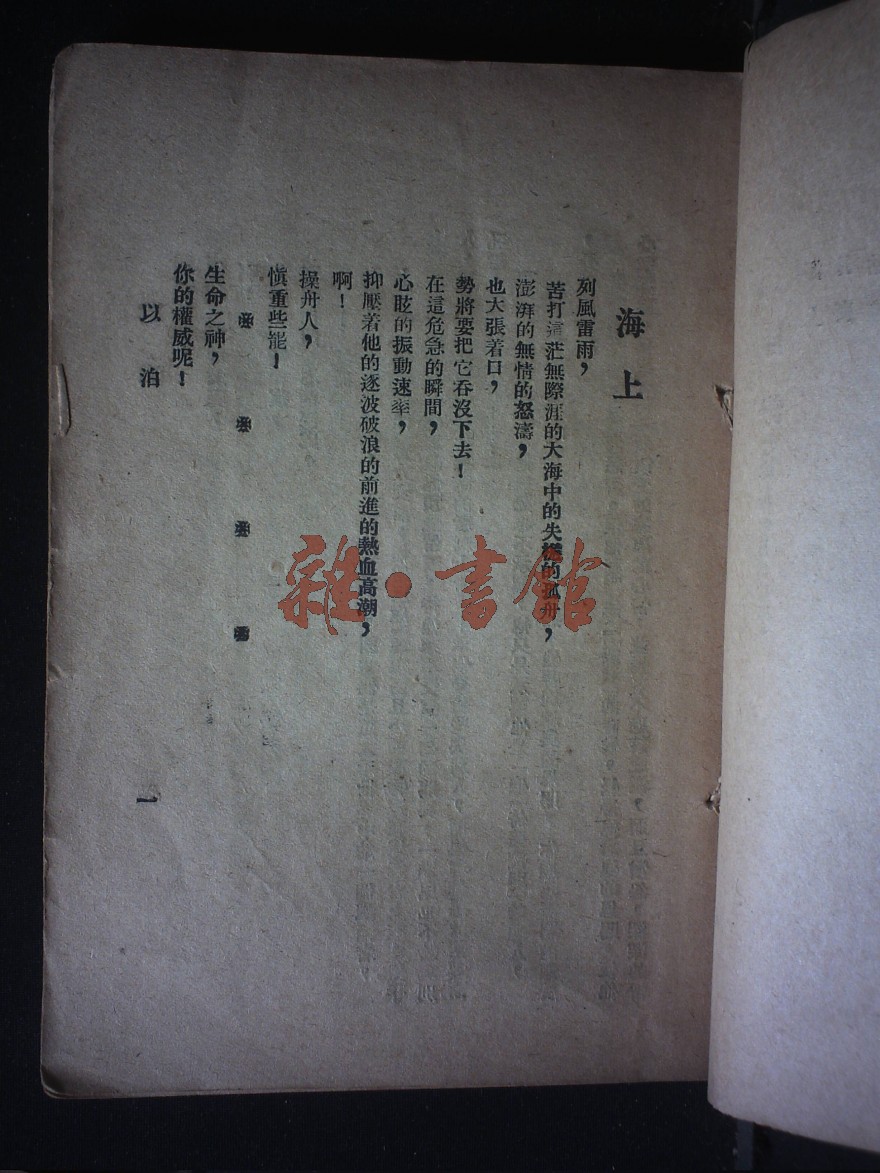 海上
列風雷雨，
苦打這茫無際涯的大海中的失檥的孤舟，
澎湃的無情的怒濤，
也大張着口，
勢將要把它吞沒下去！
在這危急的瞬間，
心眩的振動速率，
抑壓着他的逐波破浪的前進的熱血高潮，
啊！
操舟人，
愼重些罷！
生命之神，
你的權威呢！
以泊
一
雜·書館